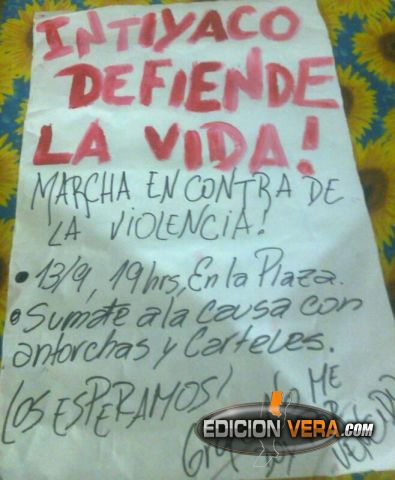 INTIYACO
DEFIENDE
LA VIDA!
MARCHA EN CONTRA DE
LA VIOLENCIA!
• 13/9, 19 hrs, En la Plaza.
• Sumate a la causa con
antorchas y Carteles.
LOS ESPERAMOS!
NO ME
EDICION VERA.COM